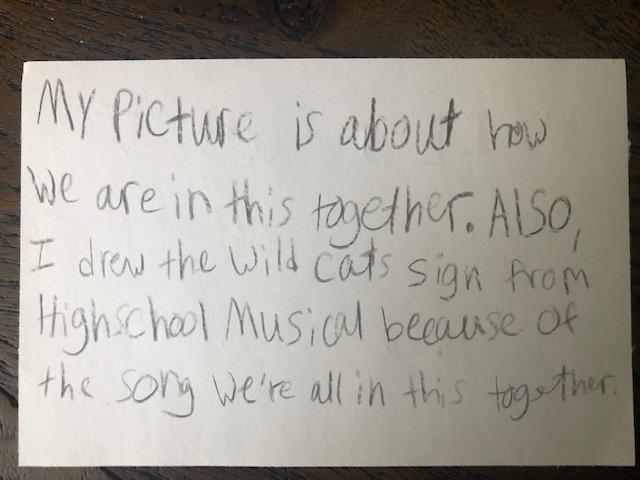 My Picture is about how
We are in this together. Also,
I drew the Wild cats sign from
Highschool Musical because of
the song We're all in this together.